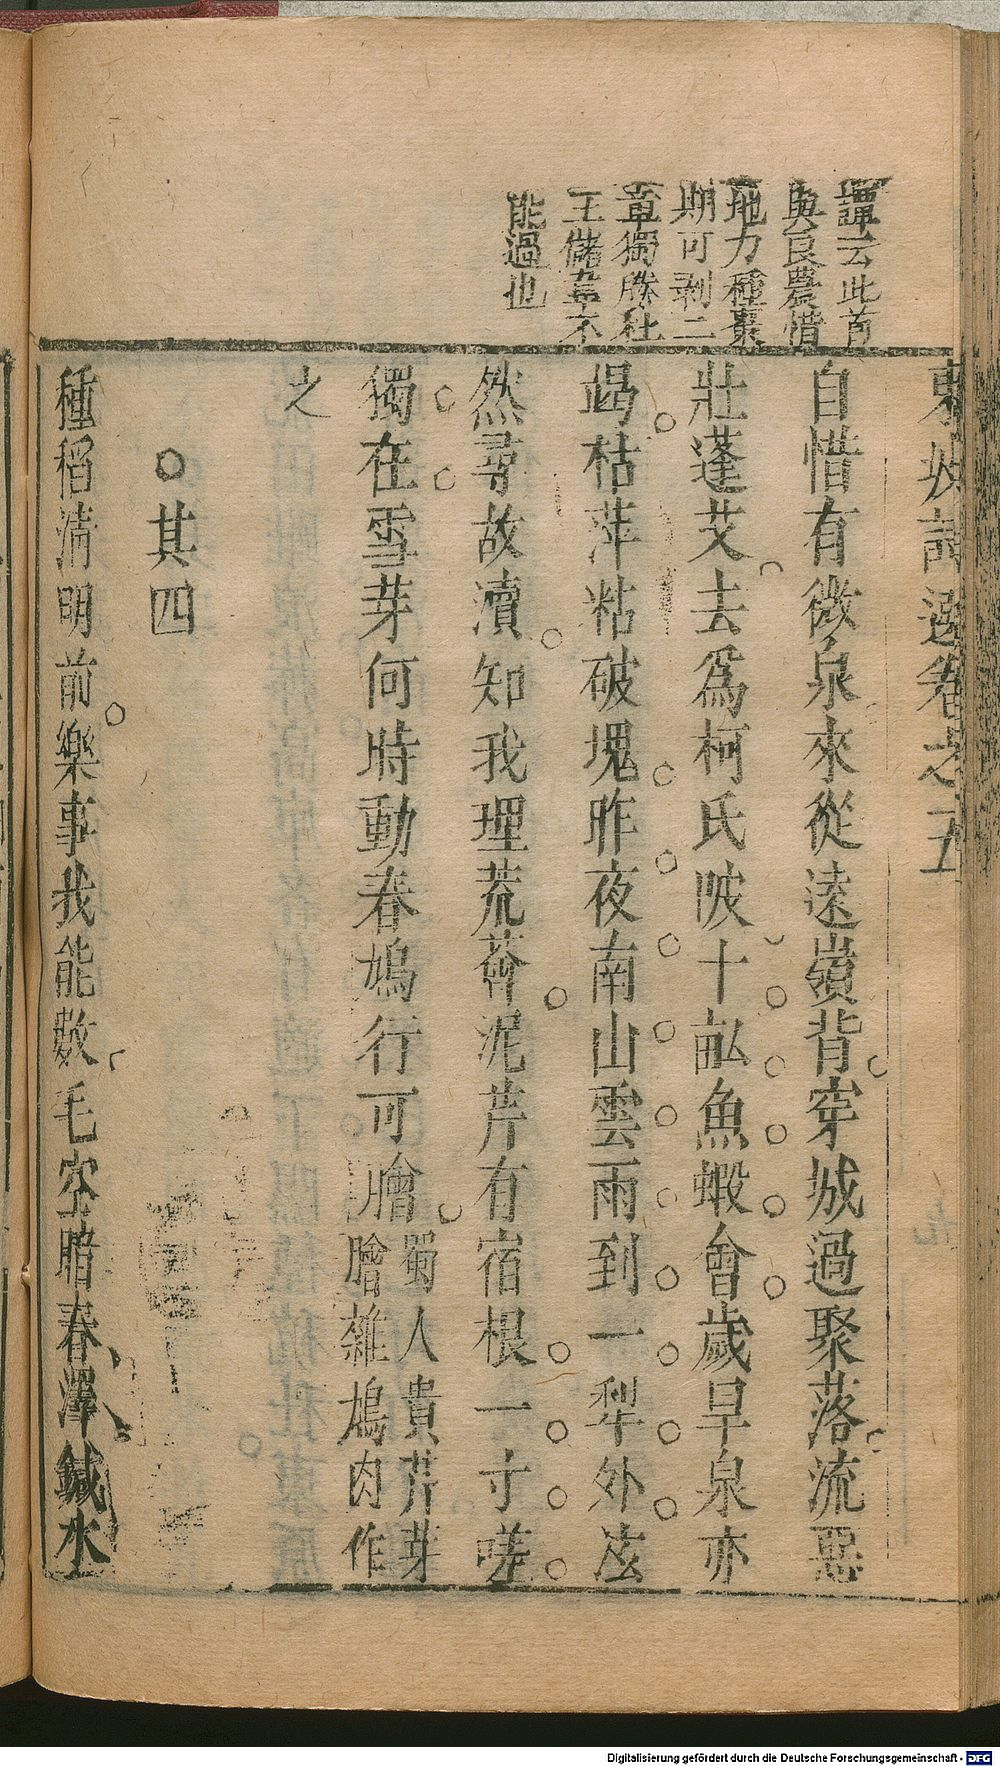 譚云此首
與良農惜
地力種棗
期可剥二
章獨勝杜
王儲韋不
能過也
東坡詩選卷之五
自惜有微泉來從遠嶺背穿城過聚落流惡
壯蓬艾去爲柯氏陂十畝魚蝦會歲旱泉亦
竭枯萍粘破塊昨夜南山雲雨到一犁外泫
然尋故瀆知我理荒薈泥芹有宿根一寸嗟
獨在雪芽何時動春鳩行可膾蜀人貴芹芽膾雜鳩肉作
之
○其四
種稻清明前樂事我能數毛空暗春澤鍼水
Digitalisierung gefördert durch die Deutsche Forschungsgemeinschaft - DFG